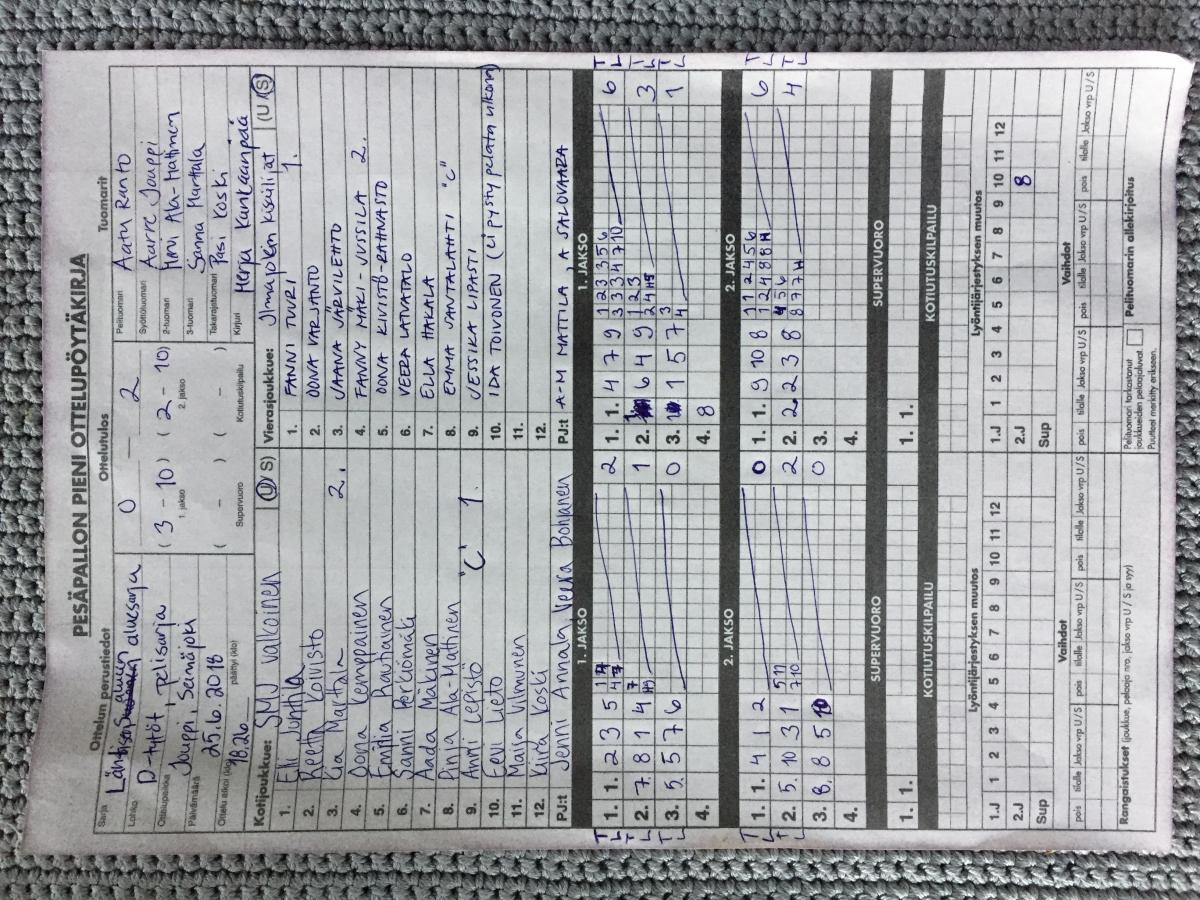 PESÄPALLON PIENI OTTELUPÖYTÄKIRJA
Ottelun perustiedot
Sarja
Läntisen alueen aluesarja
Lohko
D-tytöt, pelisarja
Ottelupaikka
Jouppi, Seinäjoki
Päivämäärä
25.6.2018
Ottelu alkoi (klo) 18.26 päättyi (klo)
Ottelutulos
0 — 2
( 3 - 10 ) ( 2 - 10 )
1. jakso 2. jakso
( - ) ( - )
Supervuoro Kotiutuskilpailu
Tuomarit
Pelituomari Aatu Ranto
Syöttötuomari Aarre Jouppi
2-tuomari
3-tuomari Sanna Martala
Takarajatuomari Pasi Koski
Kirjuri Merja Kankaanpää
Kotijoukkue: SMJ valkoinen (U/S)
1. Elli Junttila
2. Reetta Koivisto
3. Eia Martala 2.
4. Oona Kemppainen
5. Emilia Rauhanen
6. Sanni Porkiömäki
7. Aada Mäkinen
8. Pinja Ala-Mattinen
9. Anni Lepistö "C" 1.
10. Eevi Lieto
11. Maija Vilmunen
12. Kiira Koski
PJ:t Jenni Annala, Veera Bohlanen
Vierasjoukkue: Ilmajoen Kisailijat (U/S)
1. FANNI TUURI 1.
2. OONA VARJANTO
3. JAANA JÄRVILEHTO
4. FANNY MÄKI-JUSSILA 2.
5. OONA KIVISTÖ-RAHNASTO
6. VEERA LATVATALO
7. ELLA HAKALA
8. EMMA SANTALAHTI "C"
9. JESSIKA LIPASTI
10. IDA TOIVONEN (ei pysty pelata ulkona)
11.
12.
PJ:t A-M MATTILA, A SALOVAARA
1. JAKSO
T L 1. 1. 2 3 5 2
T L 2. 7. 8 1 4 1
T L 3. 5. 5 7 6 0
4.
1. JAKSO
1. 1. 4 7 9 1 2 3 3 5 6 6 T L
2. 6 4 9 1 2 3 3 T L
3. 1 5 7 3 1 T L
4. 8
2. JAKSO
T L 1. 1. 4 1 2 0
T L 2. 5. 10 3 1 2
3. 8. 8 5 10 0
4.
2. JAKSO
1. 1. 9 10 8 1 1 2 4 5 6 6 T L
2. 2. 2 3 8 4 5 6 4 T L
3.
4.
SUPERVUORO
1. 1.
SUPERVUORO
1. 1.
KOTIUTUSKILPAILU
KOTIUTUSKILPAILU
Lyöntijärjestyksen muutos
1.J 1 2 3 4 5 6 7 8 9 10 11 12
2.J
Sup
Lyöntijärjestyksen muutos
1.J 1 2 3 4 5 6 7 8 9 10 11 12
2.J 8
Sup
Vaihdot
pois tilalle Jakso vrp U/S pois tilalle Jakso vrp U/S pois tilalle Jakso vrp U/S
Vaihdot
pois tilalle Jakso vrp U/S pois tilalle Jakso vrp U/S pois tilalle Jakso vrp U/S
Rangaistukset (joukkue, pelaaja nro, jakso vrp U / S ja syy)
Pelituomari tarkastanut joukkueiden pelaajaluvat.
Puutteet merkitty erikseen.
Pelituomarin allekirjoitus